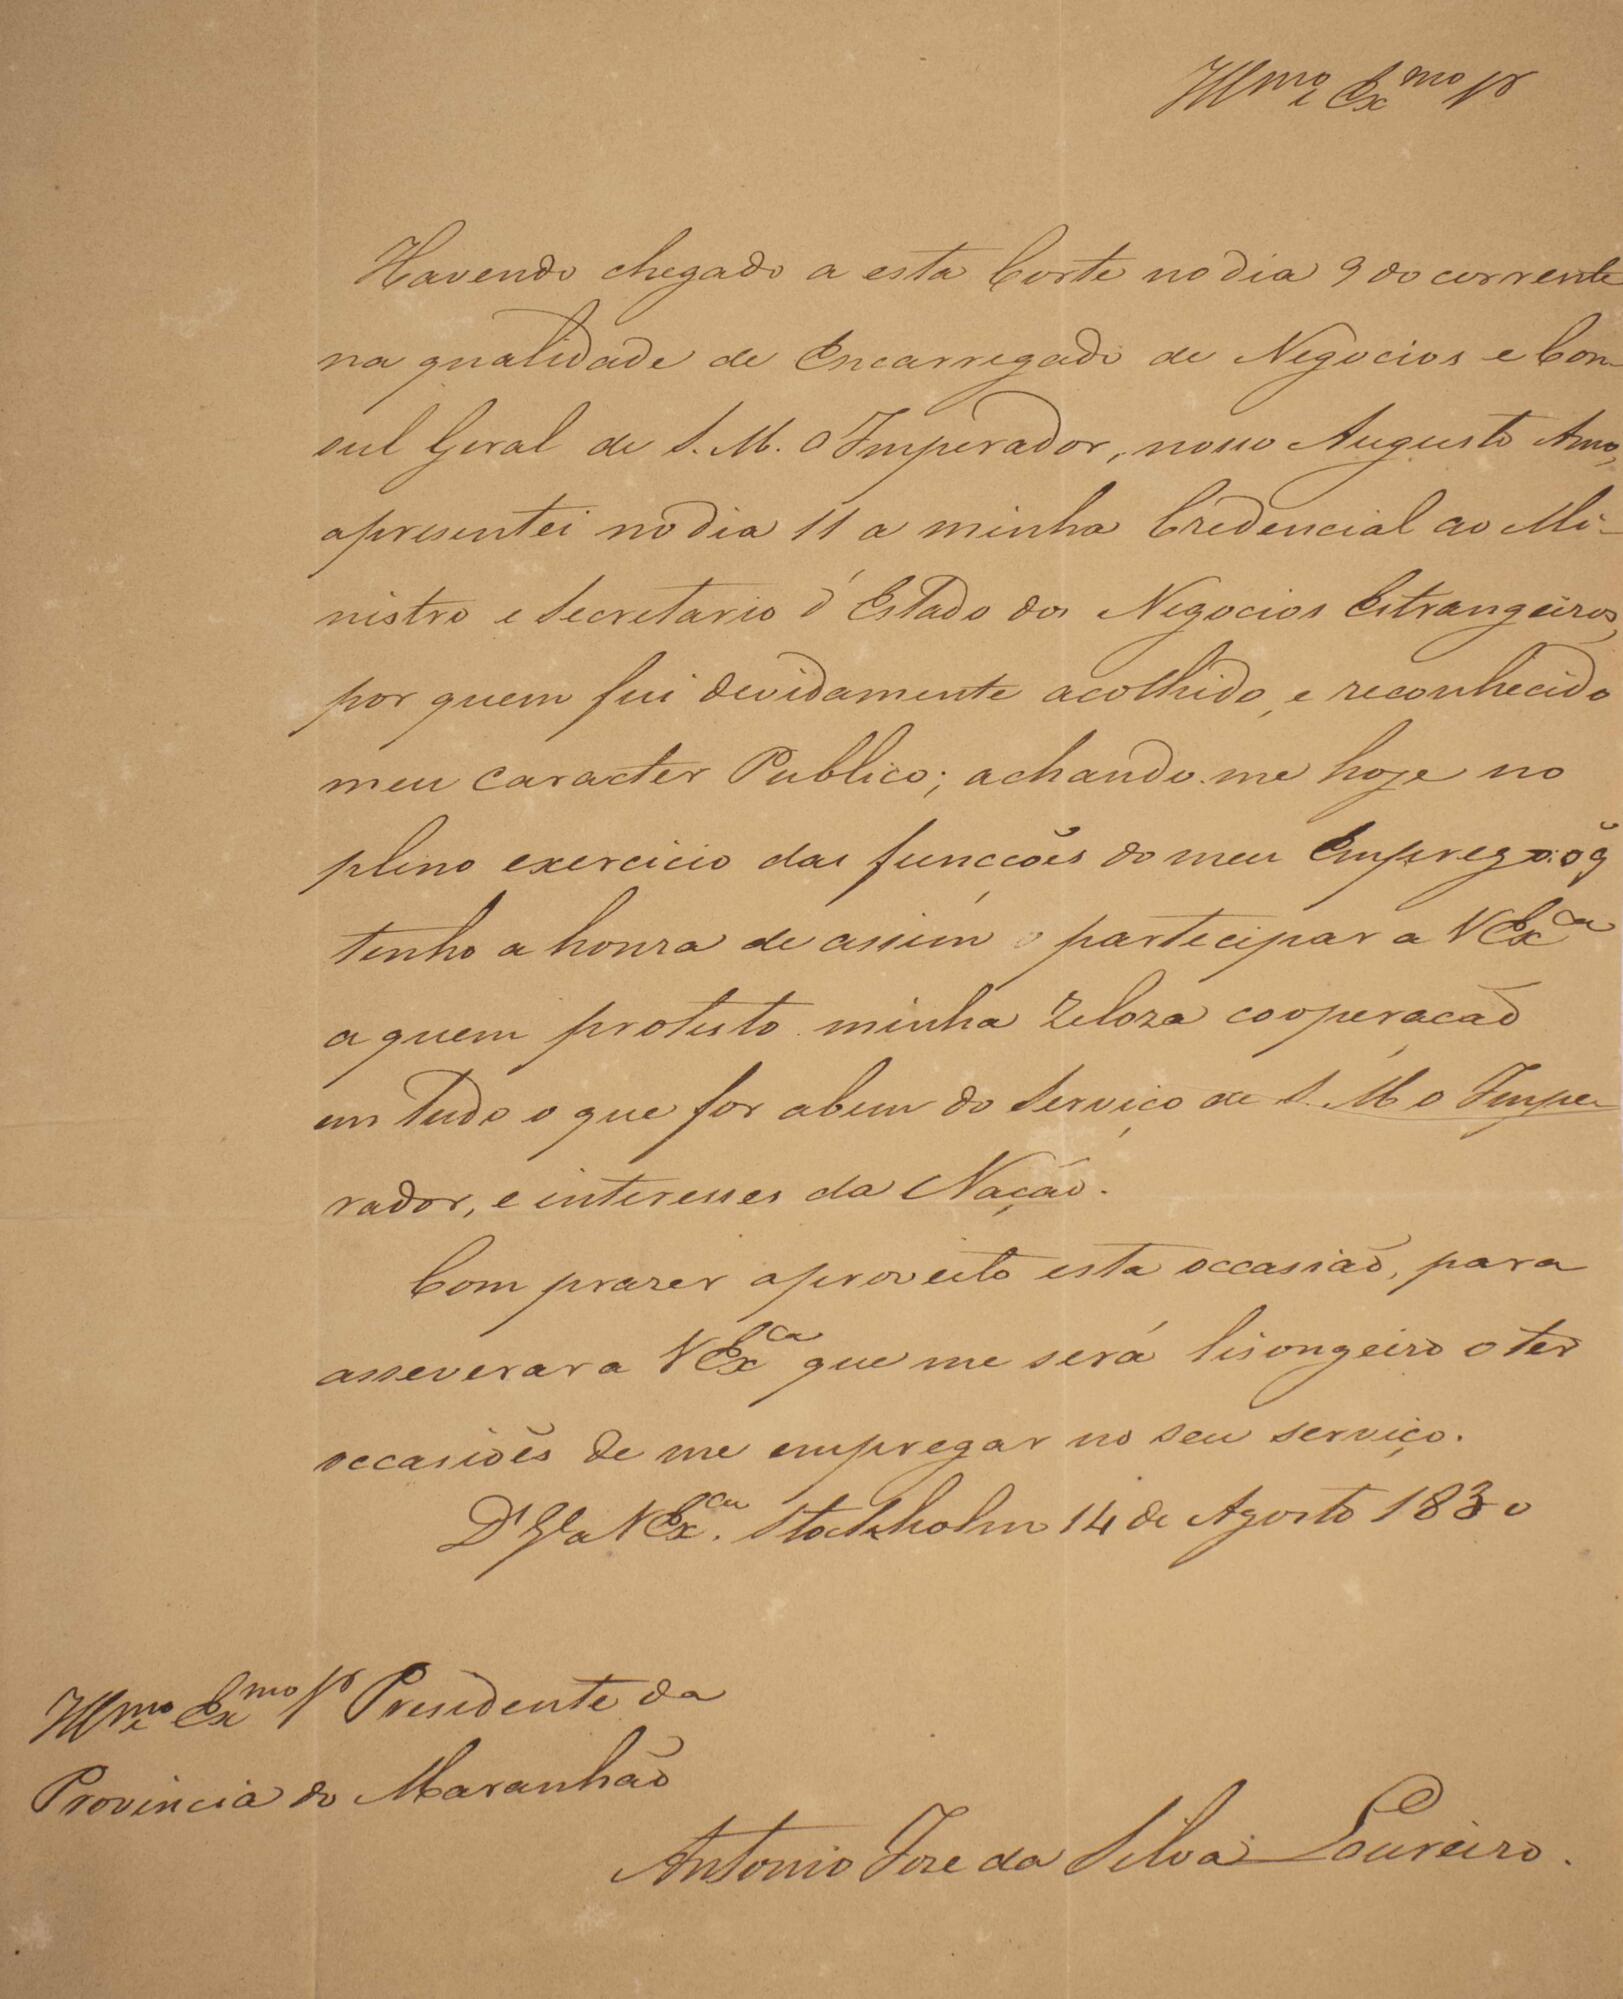 Illmo e Exmo Sr
Havendo chegado a esta Corte no dia 9 do corrente
na qualidade de Encarregado de Negocios e Con-
sul Geral de S. M. O Imperador, nosso Augusto Amo,
apresentei no dia 11 a minha Credencial ao Mi-
nistro e Secretario d'Estado dos Negocios Estrangeiros,
por quem fui devidamente acolhido, e reconhecido
meu caracter Publico; achando-me hoje no
pleno exercicio das funcções do meu Emprego: o q̃
tenho a honra de assim participar a V Exca
a quem protesto minha zeloza cooperacaõ
em tudo o que for abem do Serviço de S. M. o Impe-
rador, e interesses da Naçaõ.
Com prazer aproveito esta occasiaõ, para
asseverar a V Exca que me será lisongeiro o ter
occasioẽs de me empregar no seu serviço.
Ds Gde a V Exca. Stockholm 14 de Agosto 1830
Illmo e Exmo Sr Presidente da
Provincia do Maranhão
Antonio Joze da Silva Loureiro.